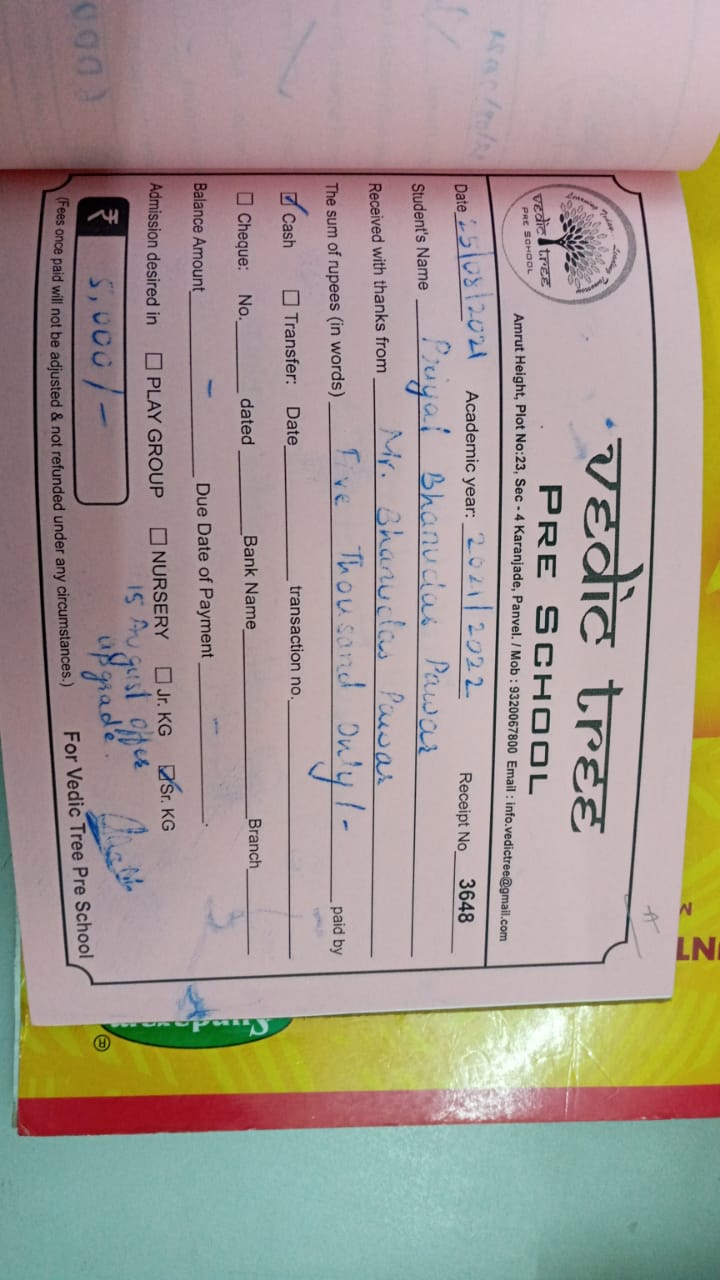 vedic tree
PRE SCHOOL
Learning Today... Leading Tomorrow
vedic tree
PRE SCHOOL
Amrut Height, Plot No:23, Sec - 4 Karanjade, Panvel. / Mob : 9320067800 Email : info.vedictree@gmail.com
Date 25/08/2021 Academic year: 2021/2022 Receipt No 3648
Student's Name Priyal Bhanudas Pawar
Received with thanks from Mr. Bhanudas Pawar
The sum of rupees (in words) Five Thousand Only/- paid by
Cash Transfer: Date transaction no.
Cheque: No. dated Bank Name Branch
Balance Amount - Due Date of Payment -
Admission desired in PLAY GROUP NURSERY Jr. KG Sr. KG
15 August offer
upgrade.
₹ 5,000/-
For Vedic Tree Pre School
(Fees once paid will not be adjusted & not refunded under any circumstances.)
Sundaram
®